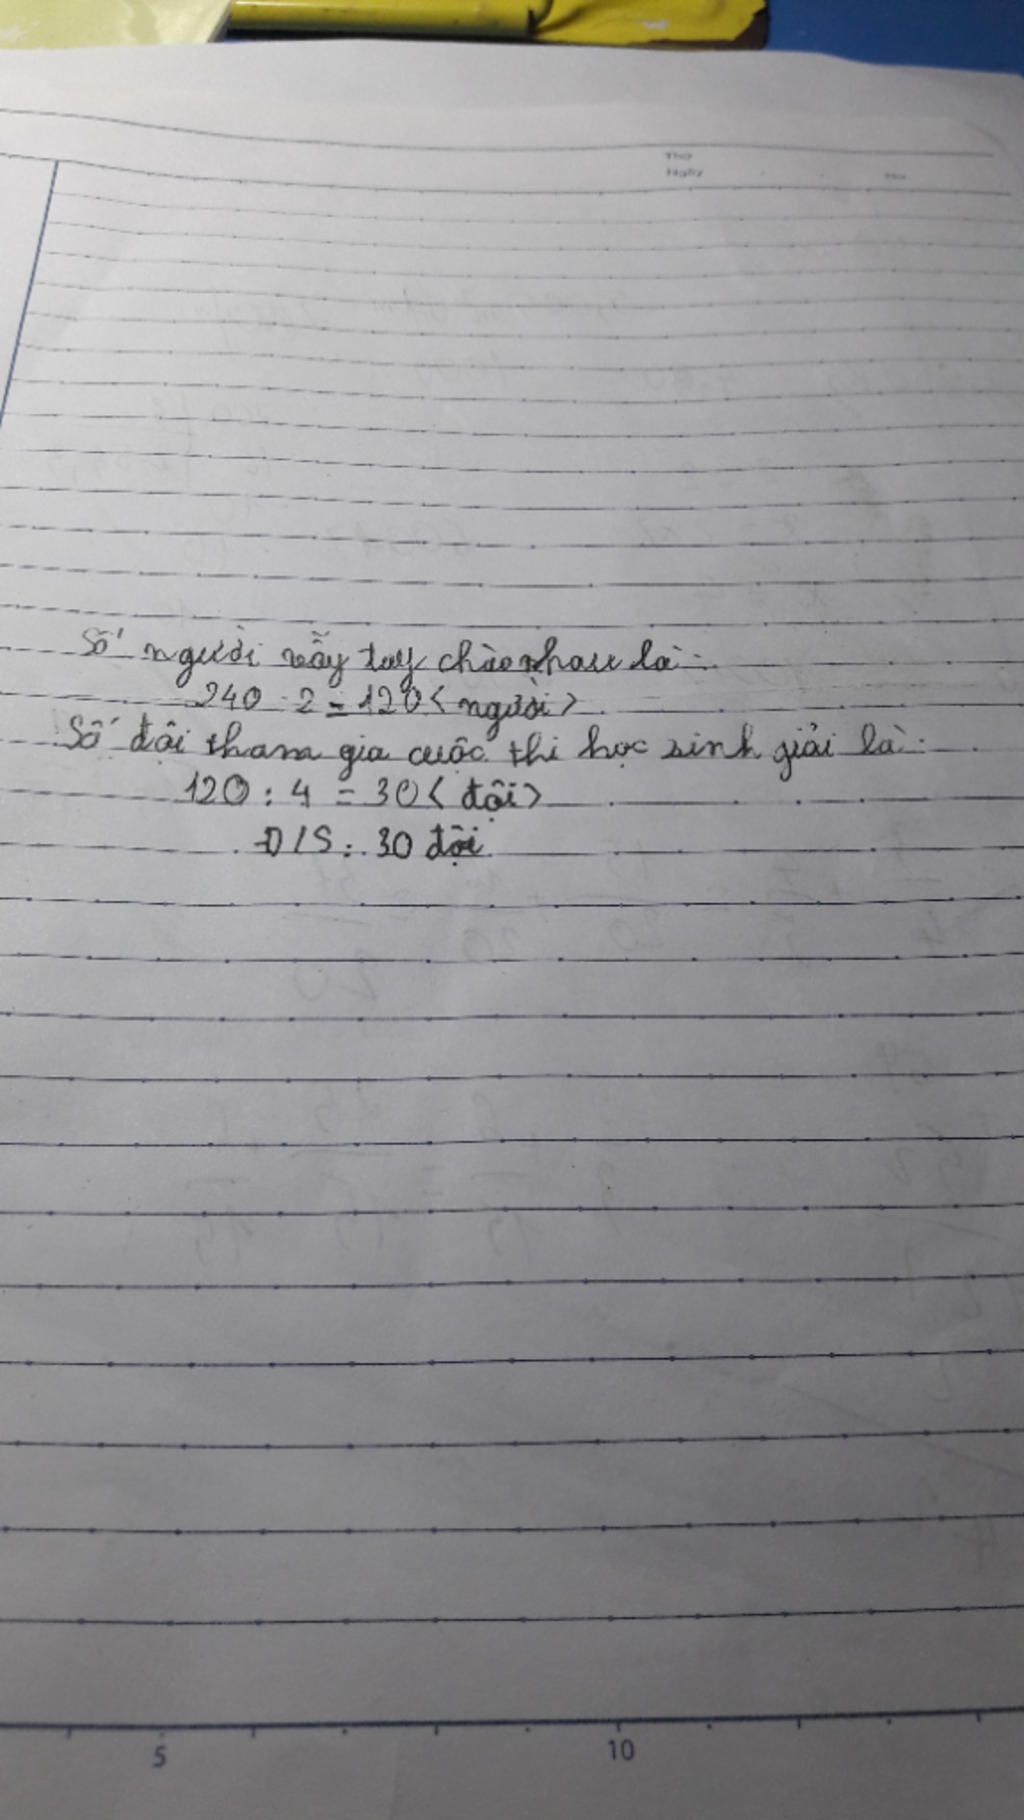 Thứ
Ngày
Số người vẫy tay chào nhau là:
240 : 2 = 120 <người>
Số đội tham gia cuộc thi học sinh giải là:
120 : 4 = 30 < đội>
Đ/S: 30 đội
5 10